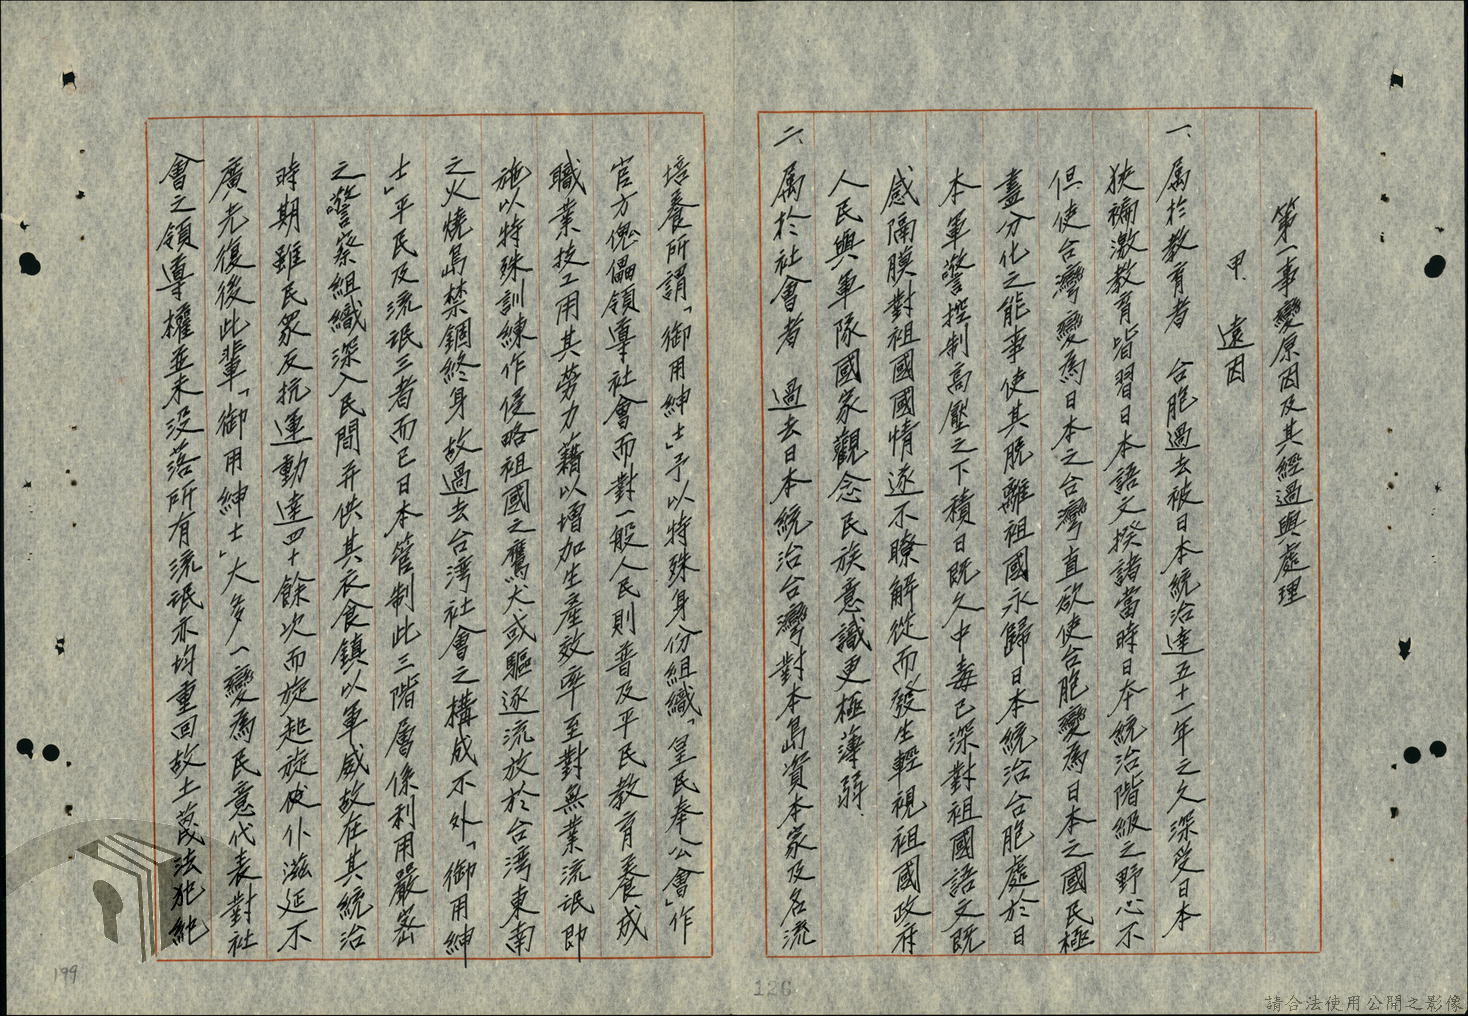 第一事變原因及其經過與處理
甲、遠因
一、屬於教育者 台胞過去被日本統治達五十一年之久深受日本
狹褊激教育皆習日本語文揆諸當時日本統治階級之野心不
但使台灣變為日本之台灣直欲使台胞變為日本之國民極
盡分化之能事使其脱離祖國永歸日本統治台胞處於日
本軍警控制高壓之下積日既久中毒已深對祖國語文既
感隔膜對祖國國情遂不瞭解從而發生輕視祖國政府
人民與軍隊國家觀念民族意識更極薄弱
二、屬於社會者 過去日本統治台灣對本島資本家及名流
培養所謂「御用紳士」予以特殊身份組織「皇民奉公會」作
官方傀儡領導社會而對一般人民則普及平民教育養成
職業技工用其勞力藉以增加生產效率至對無業流氓即
施以特殊訓練作侵略祖國之鷹犬或驅逐流放於台湾東南
之火燒島禁錮終身故過去台湾社會之構成不外「御用紳
士」平民及流氓三者而已日本管制此三階層係利用嚴密
之警察組織深入民間并供其衣食鎮以軍威故在其統治
時期雖民眾反抗運動達四十餘次而旋起旋仆滋延不
廣光復後此輩「御用紳士」大多一變為民意代表對社
會之領導權並未没落所有流氓亦均重回故土蔑法犯紀
199
126
請合法使用公開之影像